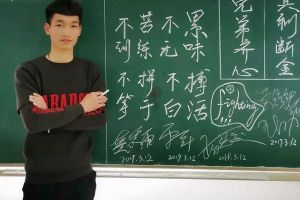 不苦不累
训练无味
不拼不搏
等于白活
兄弟齐心
其利断金
fighting
2019.3.12
2019.3.12
2019.3.12
2019.3.12